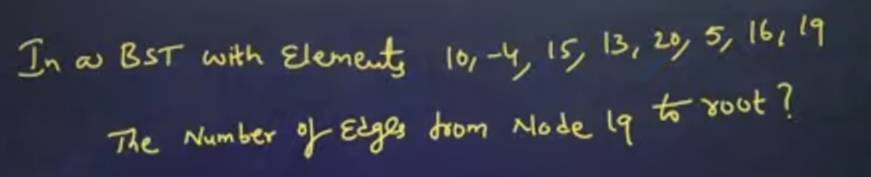 In a BST with Elements 10, -4, 15, 13, 20, 5, 16, 19
The Number of Edges from Node 19 to root?